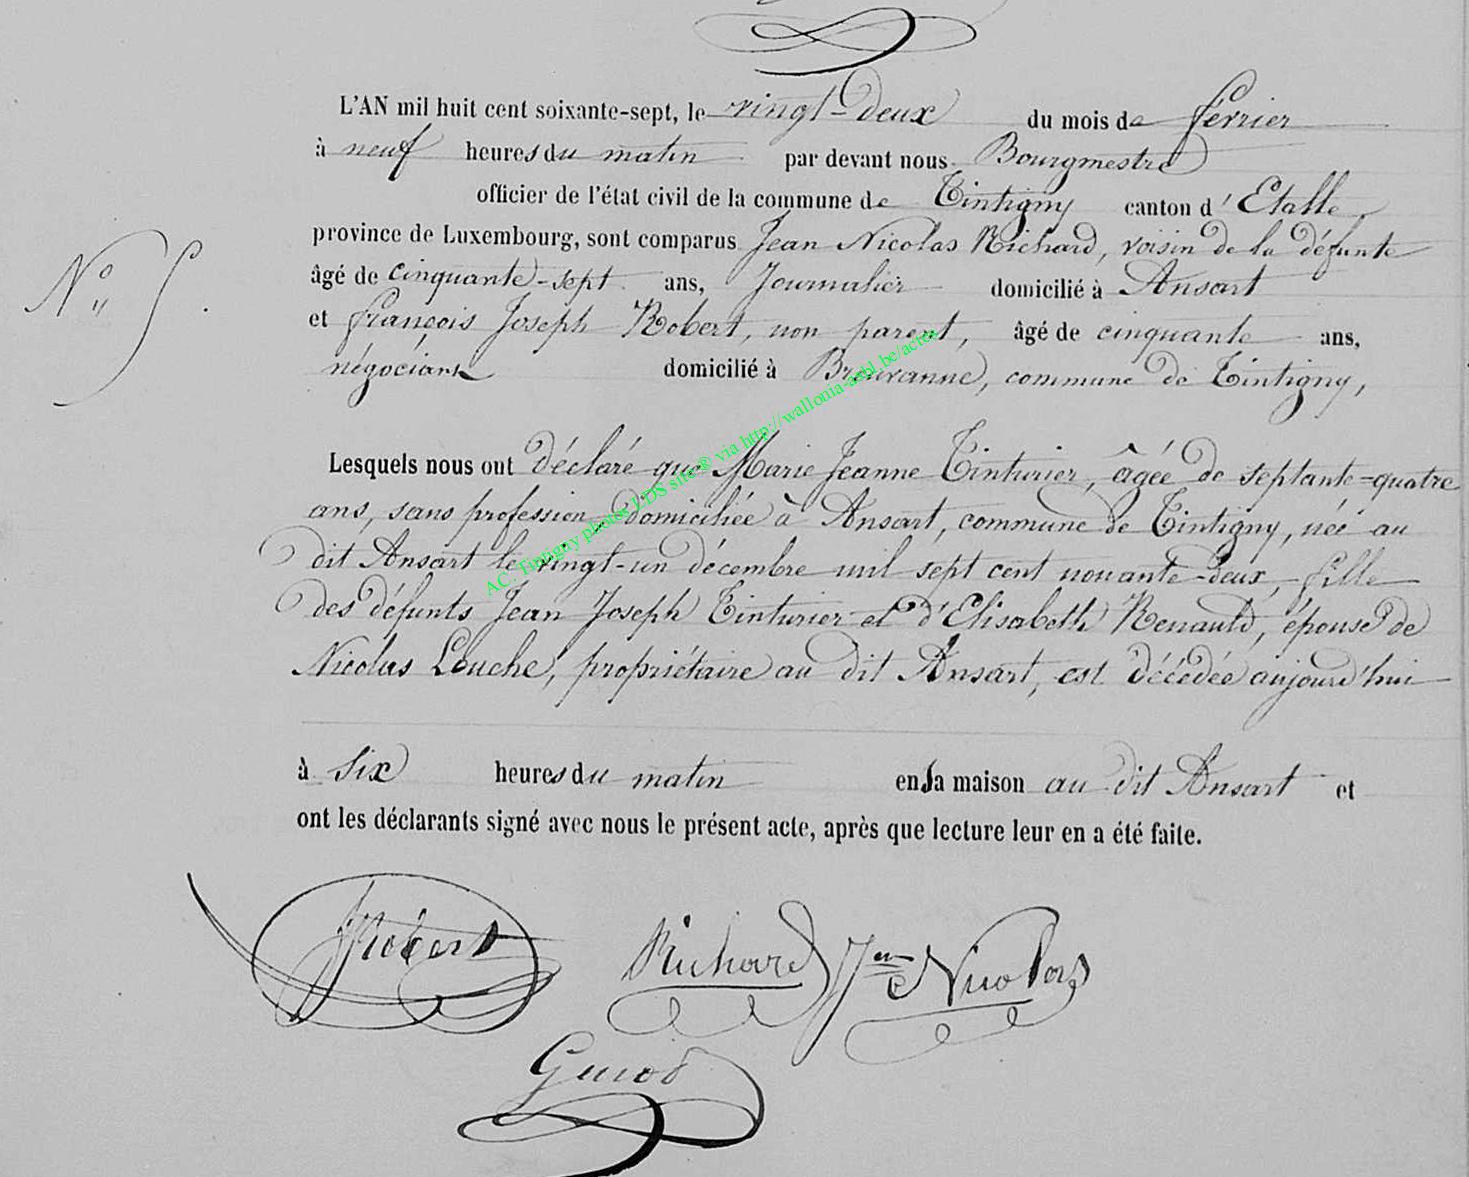 L'AN mil huit cent soixante-sept, le vingt-deux du mois de février
à neuf heures du matin par devant nous Bourgmestre
officier de l'état civil de la commune de Tintigny canton d'Etalle,
province de Luxembourg, sont comparus Jean Nicolas Richard, voisin de la défunte
âgé de cinquante-sept ans, Journalier domicilié à Ansart
N° 5.
et françois Joseph Robert, non parent, âgé de cinquante ans,
négociant domicilié à Breuvanne, commune de Tintigny,
Lesquels nous ont déclaré que Marie Jeanne Tinturier, âgée de septante-quatre
ans, sans profession, domiciliée à Ansart, commune de Tintigny, née au
dit Ansart le vingt-un décembre mil sept cent nonante-deux, fille
des défunts Jean Joseph Tinturier et d'Elisabeth Renauld, épouse de
Nicolas Louche, propriétaire au dit Ansart, est décédée aujourd'hui
à six heures du matin en sa maison au dit Ansart et
ont les déclarants signé avec nous le présent acte, après que lecture leur en a été faite.
AC. Tintigny photos LDS site® via http://wallouia-asbl.be/actes
fRobert Richard Jean Nicolas